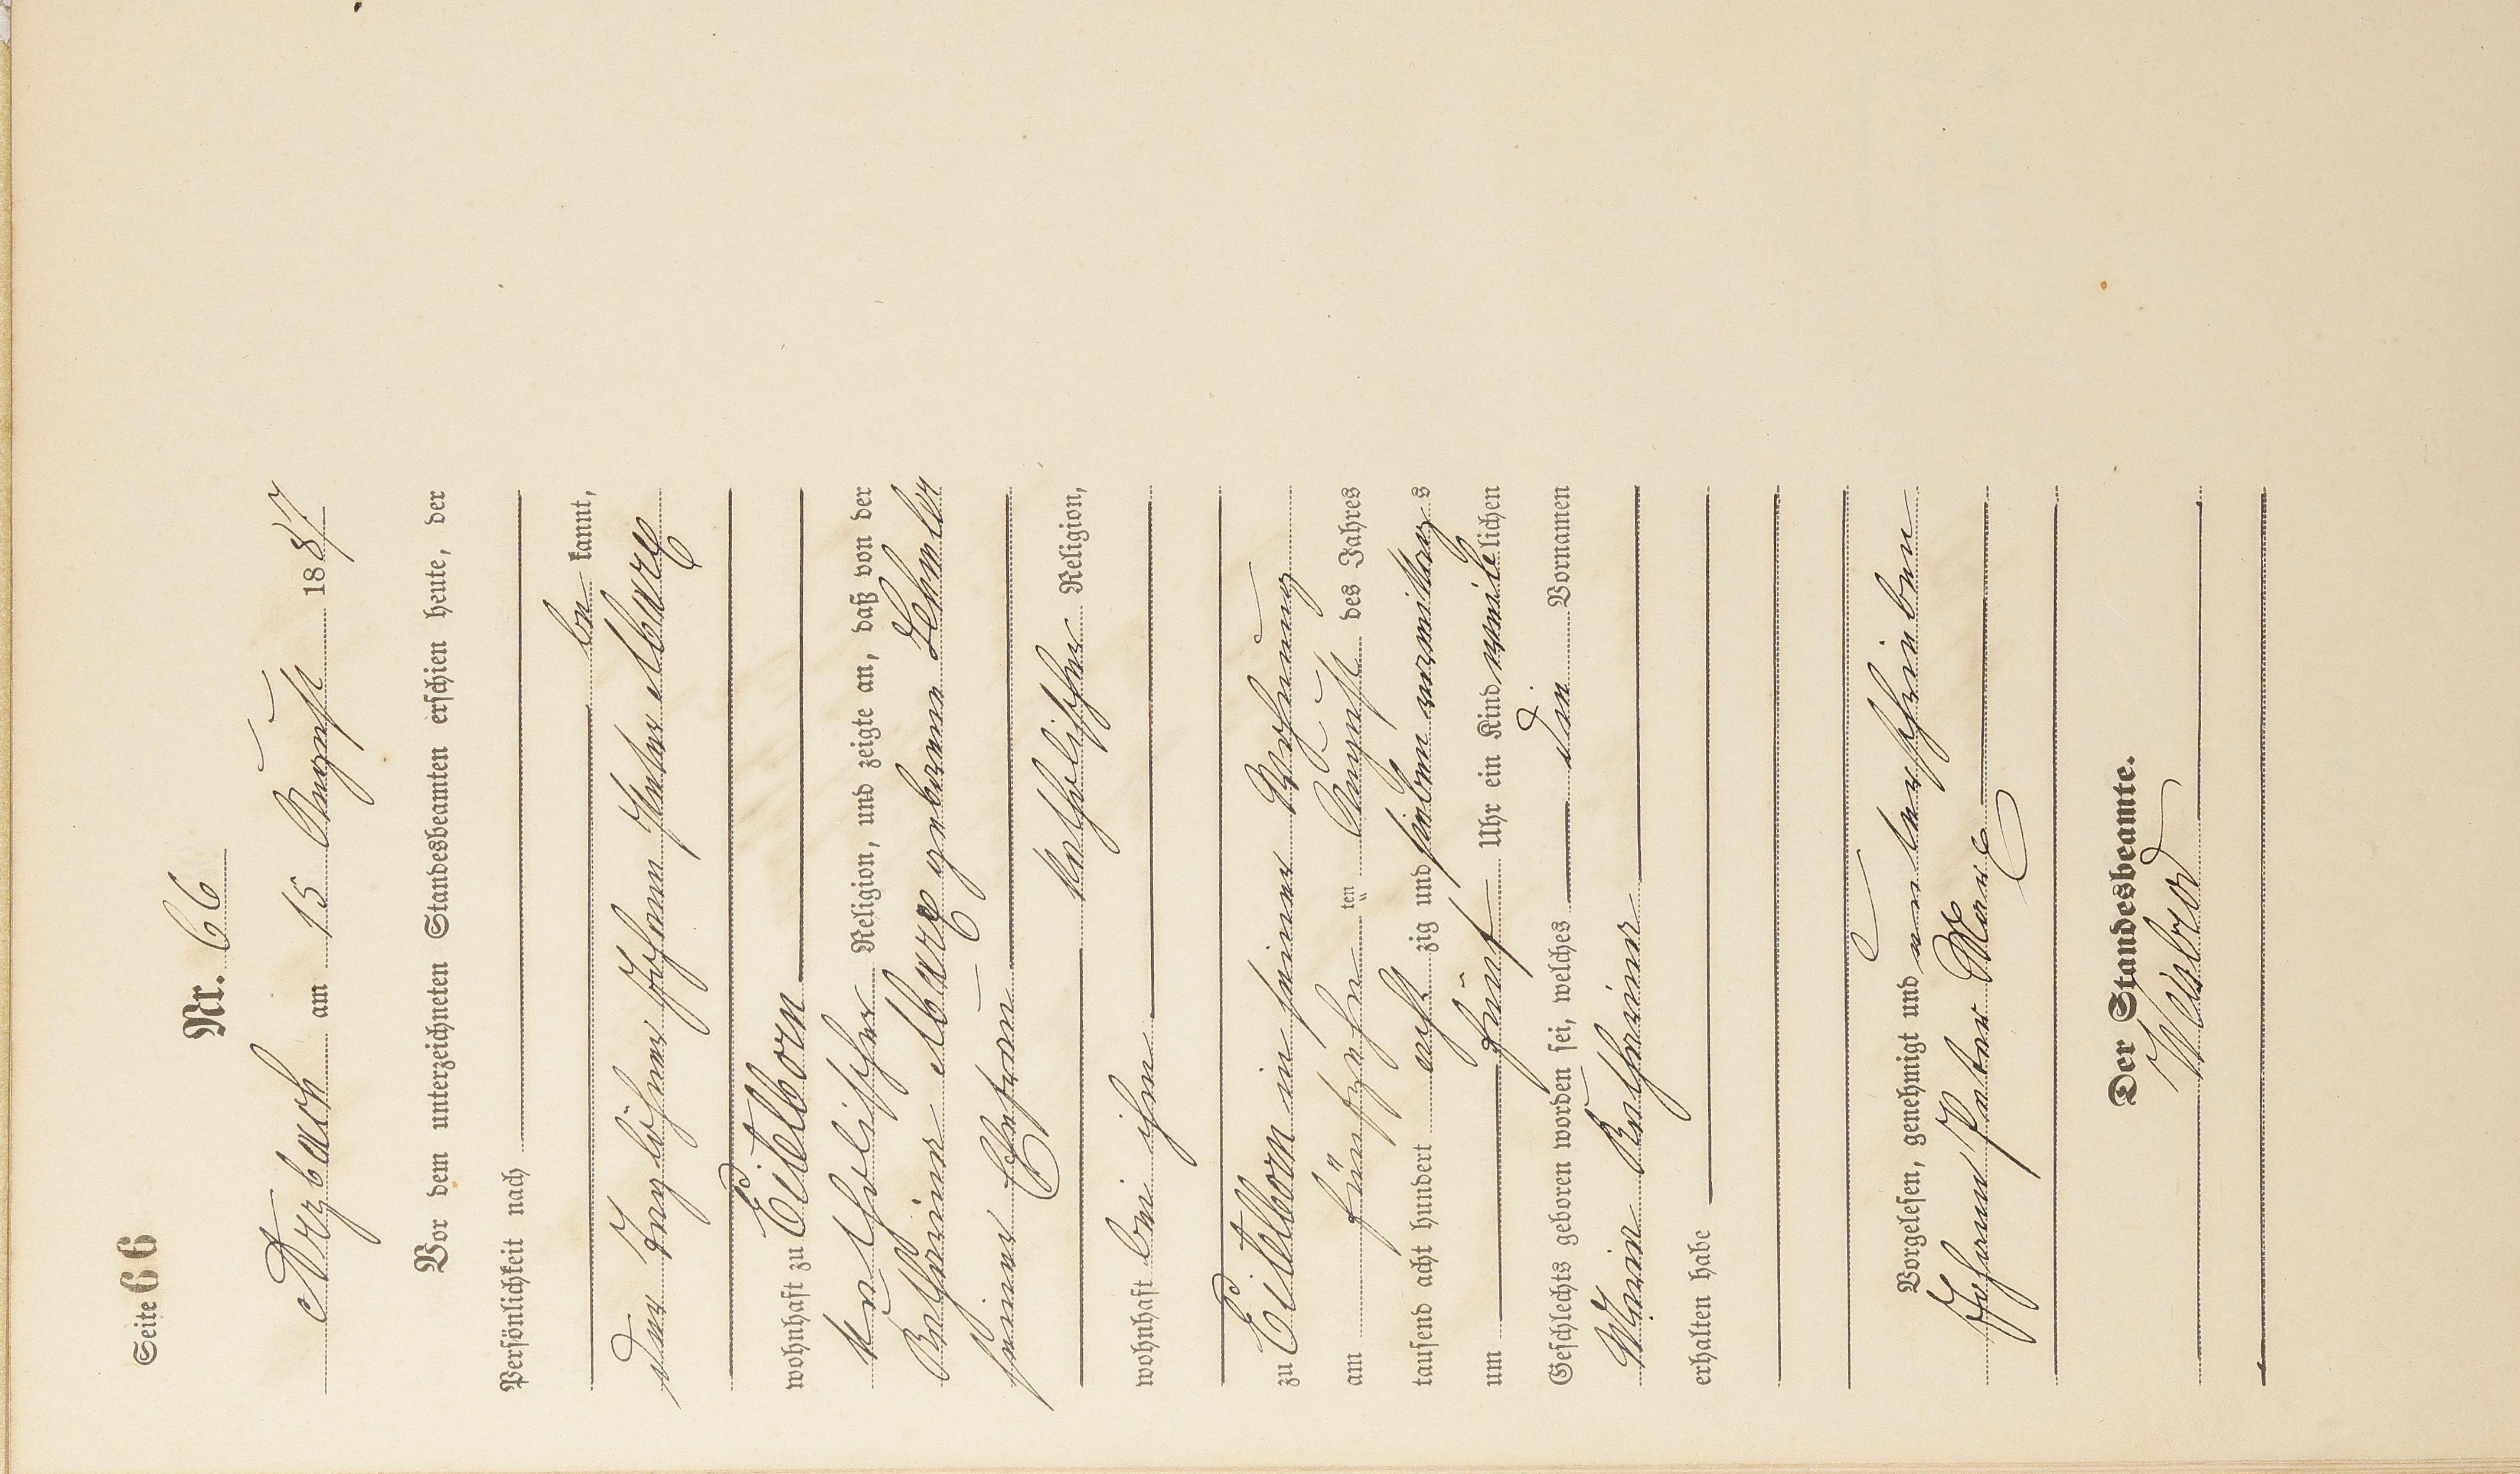 Seite 66
Nr. 66
Arzbach am 15 August 1887
Vor dem unterzeichneten Standesbeamten erschien heute, der
Persönlichkeit nach
be kannt,
der Taglöhner Johann Peter Marx
wohnhaft zu Eitelborn
katholischer Religion, und zeigte an, daß von der
Katharine Marx geborene Lehmler
seiner Ehefrau
katholischer Religion,
wohnhaft bei ihm
zu Eitelborn in seiner Wohnung
am fünfzehn ten August des Jahres
tausend acht hundert acht zig und sieben vormittags
um fünf Uhr ein Kind weiblichen
Geschlechts geboren worden sei, welches die Vornamen
Maria Katharina
erhalten habe
Vorgelesen, genehmigt und unterschrieben
Johann Peter Marx
Der Standesbeamte.